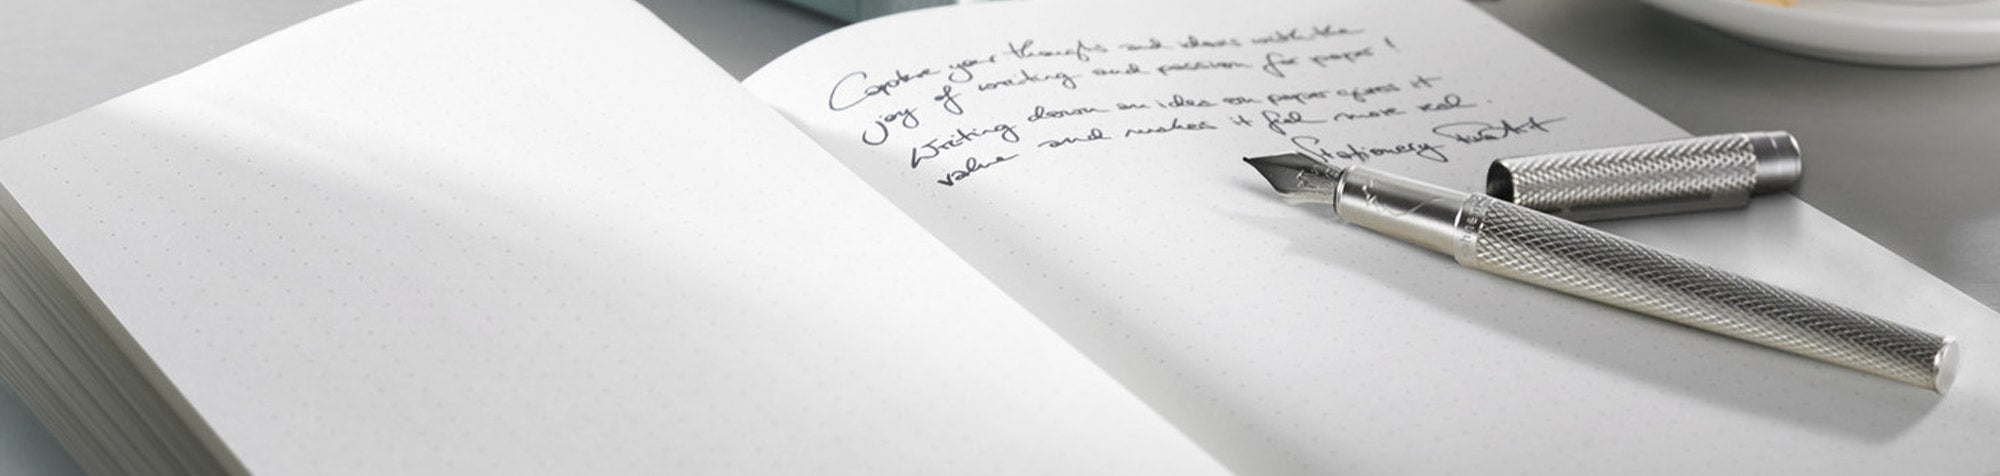 Capture your thoughts and ideas with the
joy of writing and passion for paper!
Writing down an idea on paper gives it
value and makes it feel more real.
Stationery